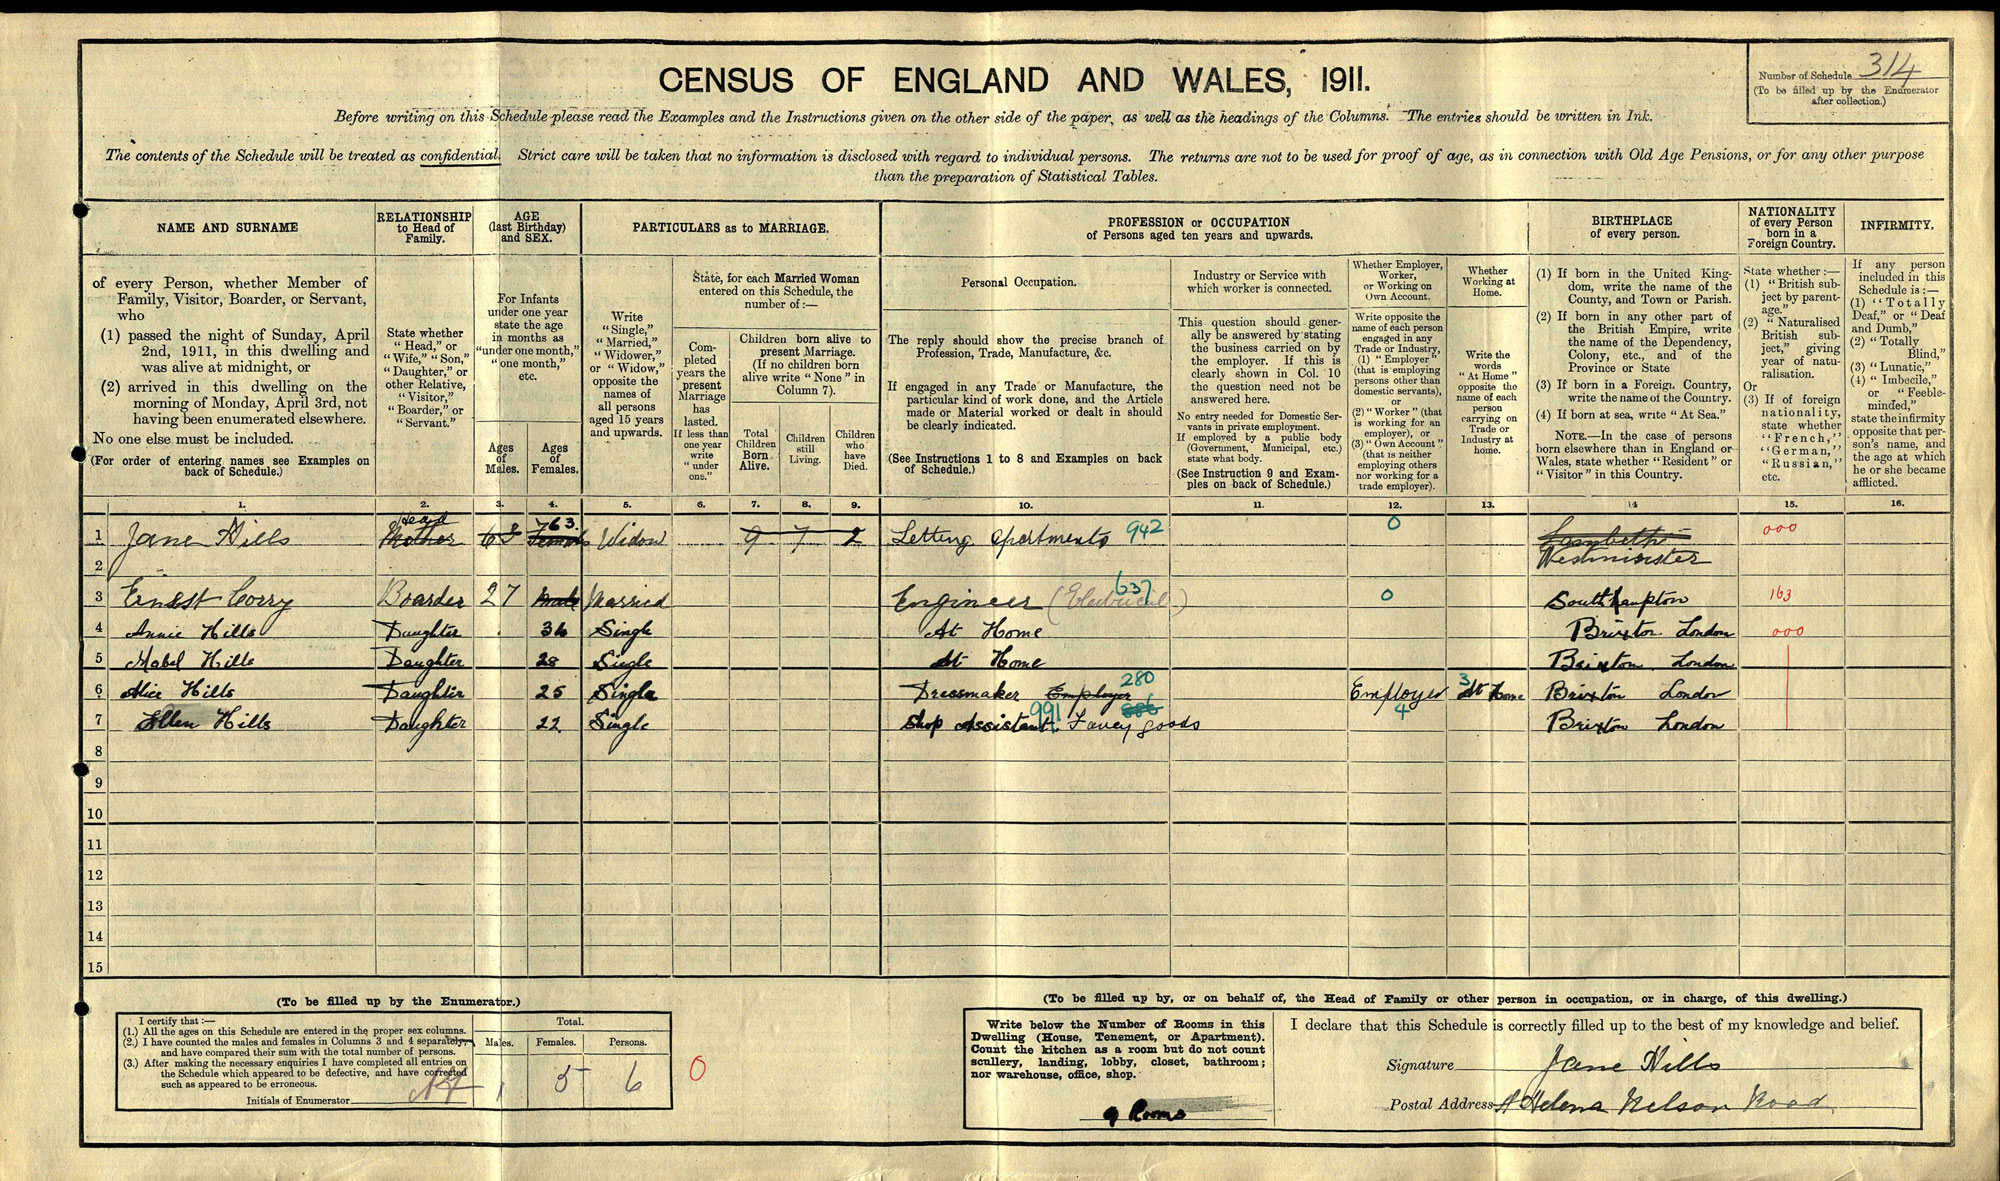 CENSUS OF ENGLAND AND WALES, 1911.
Number of Schedule 314
(To be filled up by the Enumerator
after collection.)
Before writing on this Schedule please read the Examples and the Instructions given on the other side of the paper, as well as the headings of the Columns. The entries should be written in Ink.
The contents of the Schedule will be treated as confidential. Strict care will be taken that no information is disclosed with regard to individual persons. The returns are not to be used for proof of age, as in connection with Old Age Pensions, or for any other purpose
than the preparation of Statistical Tables.
NAME AND SURNAME
of every Person, whether Member of
Family, Visitor, Boarder, or Servant,
who
(1) passed the night of Sunday, April
2nd, 1911, in this dwelling and
was alive at midnight, or
(2) arrived in this dwelling on the
morning of Monday, April 3rd, not
having been enumerated elsewhere.
No one else must be included.
(For order of entering names see Examples on
back of Schedule.)
RELATIONSHIP
to Head of
Family.
State whether
"Head," or
"Wife," "Son,"
"Daughter," or
other Relative,
"Visitor,"
"Boarder," or
"Servant."
AGE
(last Birthday)
and SEX.
For Infants
under one year
state the age
in months as
"under one month,"
"one month,"
etc.
Ages
of
Males.
Ages
of
Females.
PARTICULARS as to MARRIAGE.
Write
"Single,"
"Married,"
"Widower,"
or "Widow,"
opposite the
names of
all persons
aged 15 years
and upwards.
State, for each Married Woman
entered on this Schedule, the
number of:—
Com-
pleted
years the
present
Marriage
has
lasted.
If less than
one year
write
"under
one."
Children born alive to
present Marriage.
(If no children born
alive write "None" in
Column 7).
Total
Children
Born
Alive.
Children
still
Living.
Children
who
have
Died.
PROFESSION or OCCUPATION
of Persons aged ten years and upwards.
Personal Occupation.
The reply should show the precise branch of
Profession, Trade, Manufacture, &c.
If engaged in any Trade or Manufacture, the
particular kind of work done, and the Article
made or Material worked or dealt in should
be clearly indicated.
(See Instructions 1 to 8 and Examples on back
of Schedule.)
Industry or Service with
which worker is connected.
This question should gener-
ally be answered by stating
the business carried on by
the employer. If this is
clearly shown in Col. 10
the question need not be
answered here.
No entry needed for Domestic Ser-
vants in private employment.
If employed by a public body
(Government, Municipal, etc.)
state what body.
(See Instruction 9 and Exam-
ples on back of Schedule.)
Whether Employer,
Worker,
or Working on
Own Account.
Write opposite the
name of each person
engaged in any
Trade or Industry,
(1) "Employer"
(that is employing
persons other than
domestic servants),
or
(2) "Worker" (that
is working for an
employer), or
(3) "Own Account"
(that is neither
employing others
nor working for a
trade employer).
Whether
Working at
Home.
Write the
words
"At Home"
opposite the
name of each
person
carrying on
Trade or
Industry at
home.
BIRTHPLACE
of every person.
(1) If born in the United King-
dom, write the name of the
County, and Town or Parish.
(2) If born in any other part of
the British Empire, write
the name of the Dependency,
Colony, etc., and of the
Province or State
(3) If born in a Foreign Country,
write the name of the Country.
(4) If born at sea, write "At Sea."
NOTE.—In the case of persons
born elsewhere than in England or
Wales, state whether "Resident" or
"Visitor" in this Country.
NATIONALITY
of every Person
born in a
Foreign Country.
State whether:—
(1) "British sub-
ject by parent-
age."
(2) "Naturalised
British sub-
ject," giving
year of natu-
ralisation.
Or
(3) If of foreign
nationality,
state whether
"French,"
"German,"
"Russian,"
etc.
INFIRMITY.
If any person
included in this
Schedule is:—
(1) "Totally
Deaf," or "Deaf
and Dumb,"
(2) "Totally
Blind,"
(3) "Lunatic,"
(4) "Imbecile,"
or "Feeble-
minded,"
state the infirmity
opposite that per-
son's name, and
the age at which
he or she became
afflicted.
1. 2. 3. 4. 5. 6. 7. 8. 9. 10. 11. 12. 13. 14 15. 16.
Head 63.
1 Jane Hills Mother 63 Female Widow 9 7 2 Letting Apartments 942 0 Lambeth 000
2 Westminister
3 Ernest Corry Boarder 27 Male Married Engineer (Electrical) 637 0 Southampton 163
4 Annie Hills Daughter 36 Single At Home Brixton London 000
5 Mabel Hills Daughter 28 Single At Home Brixton London
6 Alice Hills Daughter 25 Single Dressmaker Employer 280 Employer 3 At Home Brixton London
7 Ellen Hills Daughter 22 Single Shop Assistant 991 Fancy goods 886 4 Brixton London
8
9
10
11
12
13
14
15
(To be filled up by the Enumerator.)
I certify that:—
(1.) All the ages on this Schedule are entered in the proper sex columns.
(2.) I have counted the males and females in Columns 3 and 4 separately,
and have compared their sum with the total number of persons.
(3.) After making the necessary enquiries I have completed all entries on
the Schedule which appeared to be defective, and have corrected
such as appeared to be erroneous.
Initials of Enumerator
Total.
Males. Females. Persons.
1 5 6 0
(To be filled up by, or on behalf of, the Head of Family or other person in occupation, or in charge, of this dwelling.)
Write below the Number of Rooms in this
Dwelling (House, Tenement, or Apartment).
Count the kitchen as a room but do not count
scullery, landing, lobby, closet, bathroom;
nor warehouse, office, shop.
9 Rooms
I declare that this Schedule is correctly filled up to the best of my knowledge and belief.
Signature Jane Hills
Postal Address St Helena Nelson Road